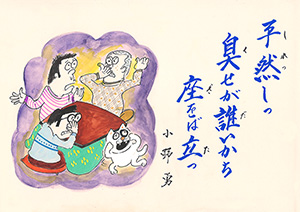 平然しっ
臭せが誰いかち
座をば立っ
小野勇